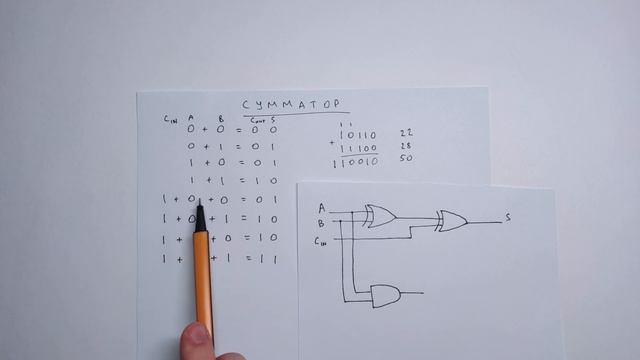 СУММАТОР
CIN A B COUT S
0 + 0 = 0 0
0 + 1 = 0 1
1 + 0 = 0 1
1 + 1 = 1 0
1 + 0 + 0 = 0 1
1 + 0 + 1 = 1 0
1 + + 0 = 1 0
1 + + 1 = 1 1
1 1
+ 10110 22
11100 28
110010 50
A
B
CIN
S